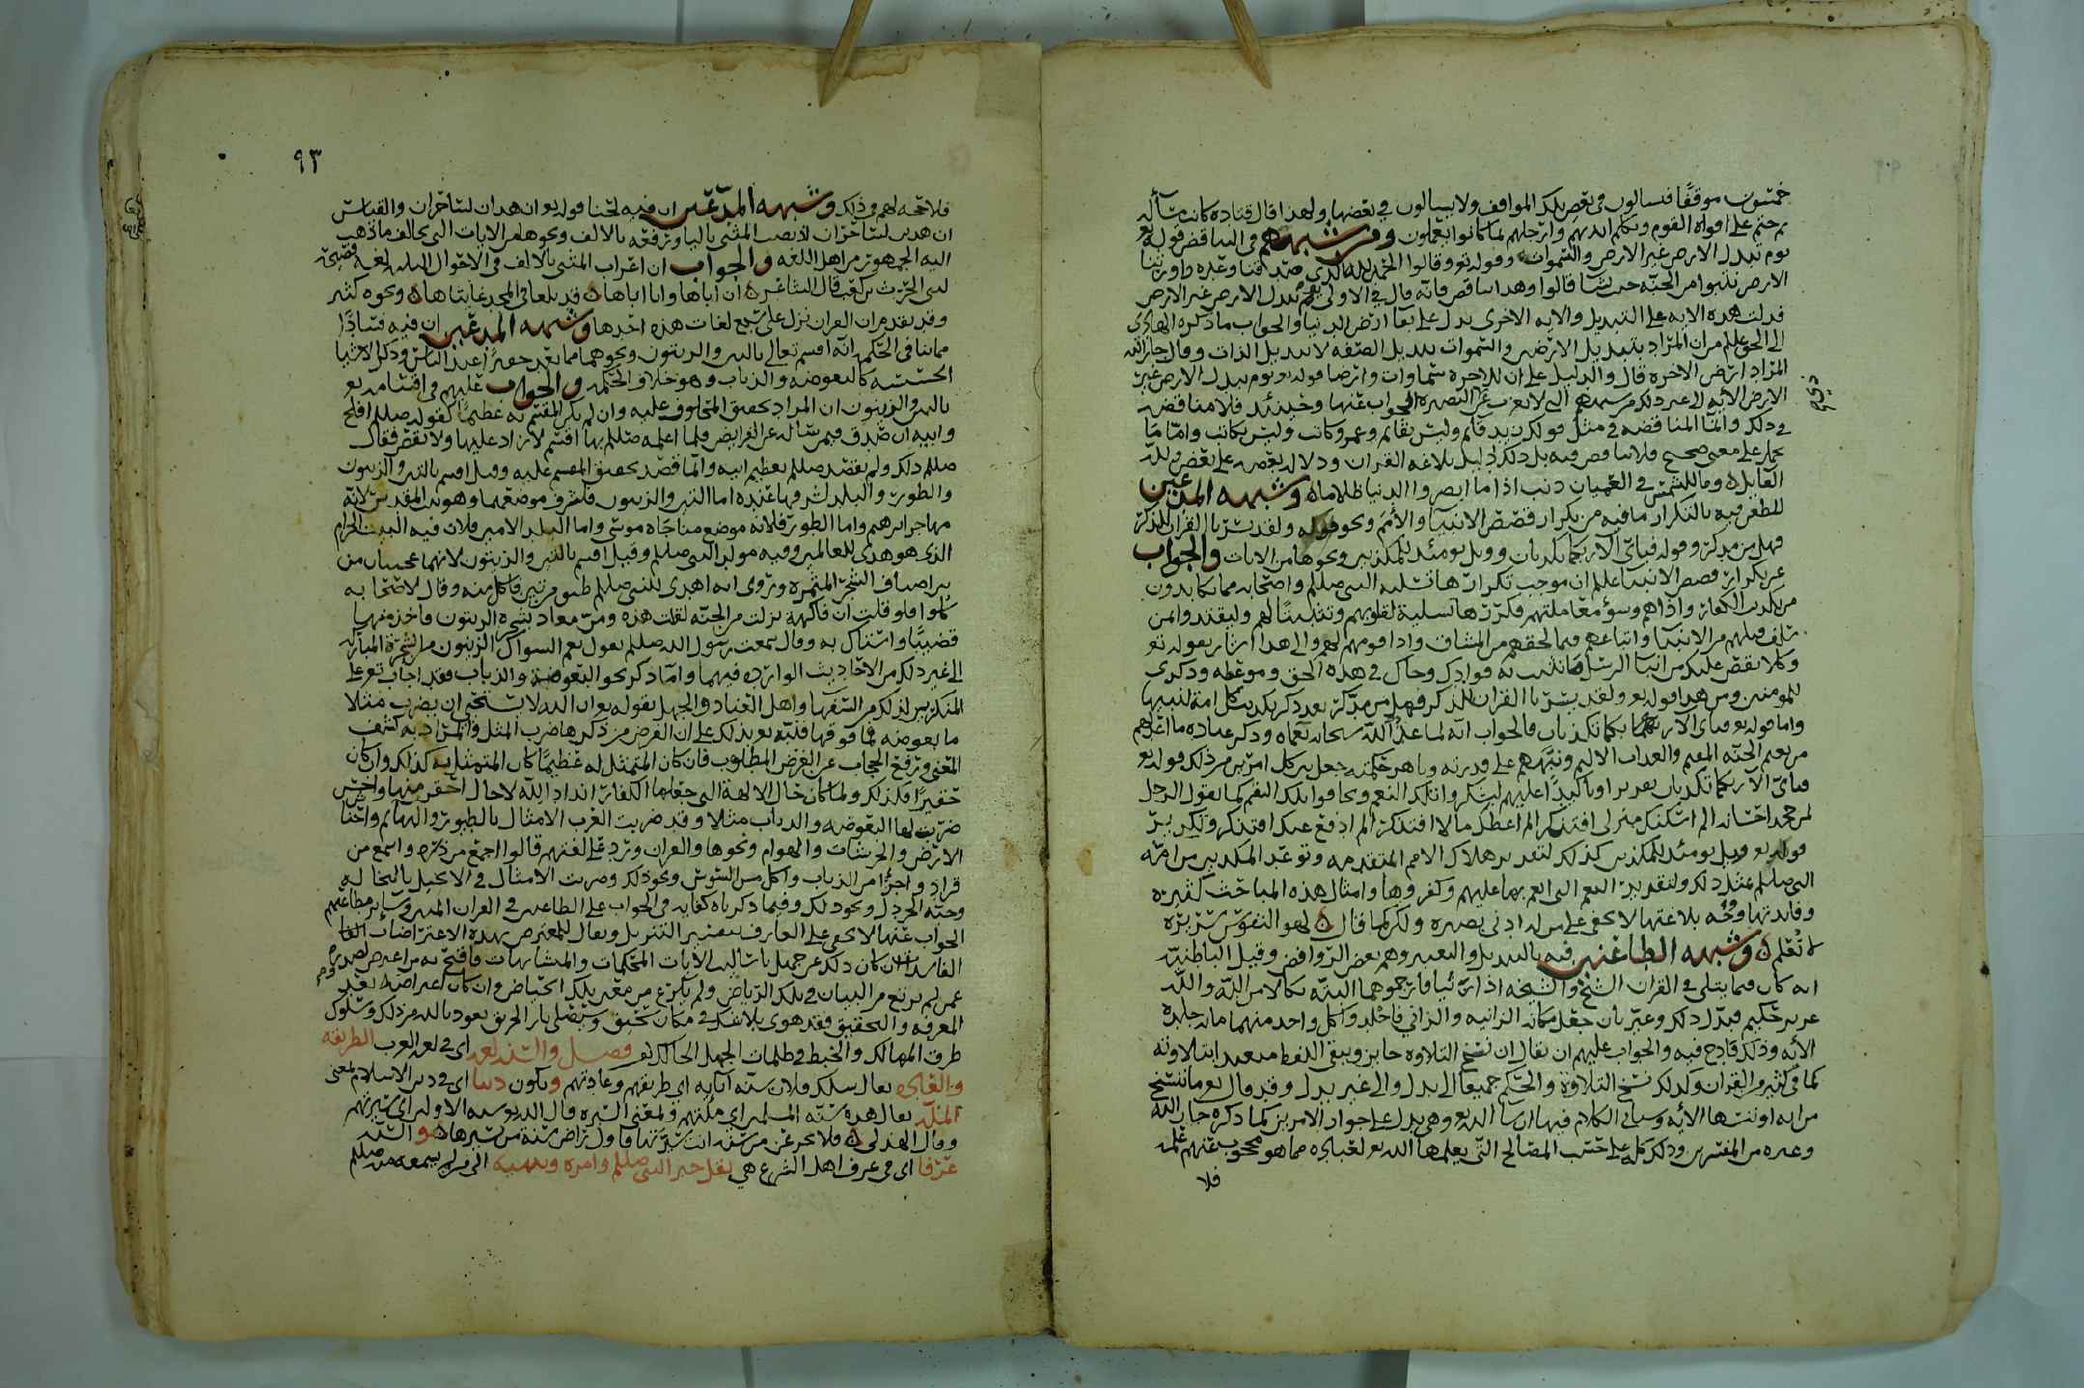 خمسون موقفا فيسألون في بعض تلك المواقف ولا يسألون في بعضها ولهذا قال قتادة كانت مسألة
ثم ختم على افواه القوم وتكلم ايديهم وارجلهم بما كانوا يعملون ومن شبههم في التناقض قوله تع
يوم تبدل الارض غير الارض والسموات وقوله تع وقالوا الحمد لله الذي صدقنا وعده واورثنا
الارض نتبوا من الجنة حيث نشا قالوا وهذا تناقض فانه قال في الاولى يوم تبدل الارض غير الارض
فدلت هذه الايه على التبديل والايه الاخرى يدل على بقا ارض الدنيا والجواب ما ذكره الهادي
الى الحق علم من ان المراد بتبديل الارض والسموات تبديل الصفه لا تبديل الذات وقال جار الله
المراد ارض الاخره قال والدليل على ان للاخره سماوات وارضا قوله تع يوم تبدل الارض غير
الارض الايه الى غير ذلك من شبههم التي لا يعزب عن ذي البصيره الجواب عنها وحينئذ فلا مناقضه
في ذلك وانما المناقضه في مثل قولك زيد قائم وليس بقائم وعمرو كاتب وليس بكاتب واما ما
يحمل على معنى صحيح فلا تناقض فيه بل ذلك دليل بلاغه القران ودلاله بعضه على بعض ولله
القايل وما للشمس في العميان ذنب اذا ما ابصروا الدنيا ظلاما وشبهه المدعين
للطعن فيه بالتكرار ما فيه من تكرار قصص الانبيا والأمم ونحو قوله ولقد يسرنا القران للذكر
فهل من مدكر وقوله فباي الا ربكما تكذبان وويل يومئذ للمكذبين ونحوها من الايات والجواب
عن تكرار قصص الانبيا علم ان موجب تكرارها تسلية النبي صللم واصحابه مما يكابدون
من تكذيب الكفار واذاهم وسوء معاملتهم فكررها تسلية لقلوبهم وتثبيتا لهم وليقتدوا بمن
سلف قبلهم من الانبيا واتباعهم فيما لحقهم من المشاق واذا قومهم لهم والى هذا اشار بقوله تع
وكلا نقص عليك من انبا الرسل ما نثبت به فوادك وجاك في هذه الحق وموعظة وذكرى
للمومنين ومن هذا قوله تع ولقد يسرنا القران للذكر فهل من مدكر بعد ذكر تكذيب كل امة لنبيها
واما قوله تع فباي الا ربكما تكذبان فالجواب انه لما عدد الله سبحانه نعماه وذكر عباده ما اعد لهم
من نعيم الجنه المقيم والعذاب الاليم ونبههم على قدرته وباهر حكمته جعل بين كل امرين من ذلك قوله تع
فباي الا ربكما تكذبان تقديرا وتاكيدا عليهم ليشكروا تلك النعم ويخافوا تلك النقم كما يقول الرجل
لمن جحد احسانه الم اسكنك منزلي افتنكر الم اعطك مالا افتنكر الم ادفع عنك افتنكر وتكرير
قوله تع ويل يومئذ للمكذبين كذلك لتقدير هلاك الامم المتقدمه وتوعد المكذبين من امة
النبي صللم بمثل ذلك ولتقدير النعم التي انعم بها عليهم وكفروها وامثال هذه المباحث كثيره
وفايدتها وجه بلاغتها لا يخفى على من له ادنى بصيره ولكن كما قال لهو النفوس سريره
لا تعلم وشبهه الطاعنين فيه بالتبديل والتغيير وهم بعض الروافض وقيل الباطنيه
انه كان فيما يتلى في القران الشيخ والشيخه اذا زنيا فارجموهما البته نكالا من الله والله
عزيز حكيم فبدل ذلك وغير بان جعل مكانه الزانيه والزاني فاجلدوا كل واحد منهما مائه جلده
الأيه وذلك قادح فيه والجواب عليهم ان يقال ان نسخ التلاوه جايز ويبقى اللفظ
كما في كثير من القران وكذلك نسخ التلاوة والحكم جميعا الى بدل والى غير بدل وقد قال تع ما ننسخ
من ايه او ننسها الأيه وسياتي الكلام فيها ان شا الله تع وهي تدل على جواز الامرين كما ذكره جار الله
وغيره من المفسرين وذلك كله على حسب المصالح التي يعلمها الله تع لعباده مما هو محجوب عنهم علمه
فلا
٩٣
فلا حجه لهم في ذلك وشبهه المدعين ان فيه لحنا قوله تع ان هذان لساحران والقياس
ان هذين لساحران لانه نصب المثنى باليا ورفعه بالالف ونحوها من الايات التي تخالف ما ذهب
اليه الجمهور من اهل اللغه والجواب ان اعراب المثنى بالالف في الاحوال الثلاث لغه فصيحه
لبني الحرث بن كعب قال الشاعر ان اباها وابا اباها قد بلغا في المجد غايتاها ونحوه كثير
وقد تقدم ان القران نزل على سبع لغات هذه احدها وشبهه المدعين ان فيه فسادا
مباينا في الحكمه انه اقسم تعالى بالتين والزيتون ونحوهما مما يعد حقيرا عند الناس وذكر الاشيا
الخسيسه كالبعوضه والذباب وهو خلاف الحكمه والجواب عليهم في اقسامه تع
بالتين والزيتون ان المراد تحقيق المحلوف عليه وان لم يكن المقسم به عظيما كقوله صللم افلح
وابيه ان صدق فيمن سأله عن الفرايض فلما اعلمه صللم بها اقسم لا زاد عليها ولا نقص فقال
صللم ذلك ولم يقصد صللم تعظيم ابيه وانما قصد تحقيق المقسم عليه وقيل اقسم بالتين والزيتون
والطور والبلد لشرفها عنده اما التين والزيتون فلشرف موضعهما وهو بيت المقدس لانه
مهاجر ابراهيم واما الطور فلانه موضع مناجاه موسى واما البلد الامين فلان فيه البيت الحرام
الذي هو هدى للعالمين وفيه مولد النبي صللم وقيل اقسم بالتين والزيتون لانهما عجيبان من
بين اصناف الشجر المثمره وروى انه اهدي للنبي صللم طبق من تين فاكل منه وقال لاصحابه
كلوا فلو قلت ان فاكهه نزلت من الجنه لقلت هذه ومر معاذ بشجره الزيتون فاخذ منها
قضيبا واستاك به وقال سمعت رسول الله صللم يقول نعم السواك الزيتون من الشجرة المباركه
الى غير ذلك من الاحاديث الوارده فيهما واما ذكر نحو البعوضة والذباب فقد اجاب تع على
المنكرين لذلك من السفها واهل العناد والجهل بقوله تع ان الله لا يستحي ان يضرب مثلا
ما بعوضه فما فوقها فنبه تع بذلك على ان الغرض من ذكرها ضرب المثل والمراد به كشف
المعنى ورفع الحجاب عن الغرض المطلوب فان كان المتمثل له عظيما كان المتمثل به كذلك وان كان
حقيرا فكذلك ولما كان حال الالهة التي جعلها الكفار اندادا لله لا حال احقر منها واخس
ضربت لها البعوضه والذباب مثلا وقد ضربت العرب الامثال بالطيور والبهائم واخنا
الارض والحشرات والهوام ونحوها والقران ورد على لغتهم قالوا اجمع من ذره واسمع من
قراد واجرأ من الذباب وآكل من السوس ونحو ذلك وضربت الامثال في الانجيل بالنخاله
وحبه الخردل ونحو ذلك وفيما ذكرناه كفايه في الجواب على الطاعنين في القران المبين وسائر مطاعنهم
الجواب عنها لا يخفى على العارف بتفسير التنزيل ويقال للمعترض بهذه الاعتراضات
الفاسده ان كان ذلك عن جهل باساليب الآيات المحكمات والمتشابهات فاقبح به من اعتراض لصدوره
عمن لم يرتع من البيان في تلك الرياض ولم يكرع من معين تلك الحياض وان كان اعتراضه بعد
المعرفه والتحقيق فقد هوى بلا شك في مكان سحيق وسيصلى نار الحريق نعوذ بالله من ذلك وسلوك
طرق المهالك والخبط في ظلمات الجهل الحالك فصل والسنه لغه اي في لغه العرب الطريقه
والعاده يقال سلك فلان سنه آبايه اي طريقهم وعادتهم وتكون دينا اي في دين الاسلام بمعنى
المله يقال هذه سنه المسلمين اي ملتهم وبمعنى السيره قال الله تع سنه الاولين اي سيرتهم
وقال الهذلي فلا تجزعن من سنة انت سرتها فاول راض سنة من يسيرها هو السنه
عرفا اي في عرف اهل الشرع هي نقل خبر النبي صللم وامره ونهيه الى من لم يسمعه منه صللم